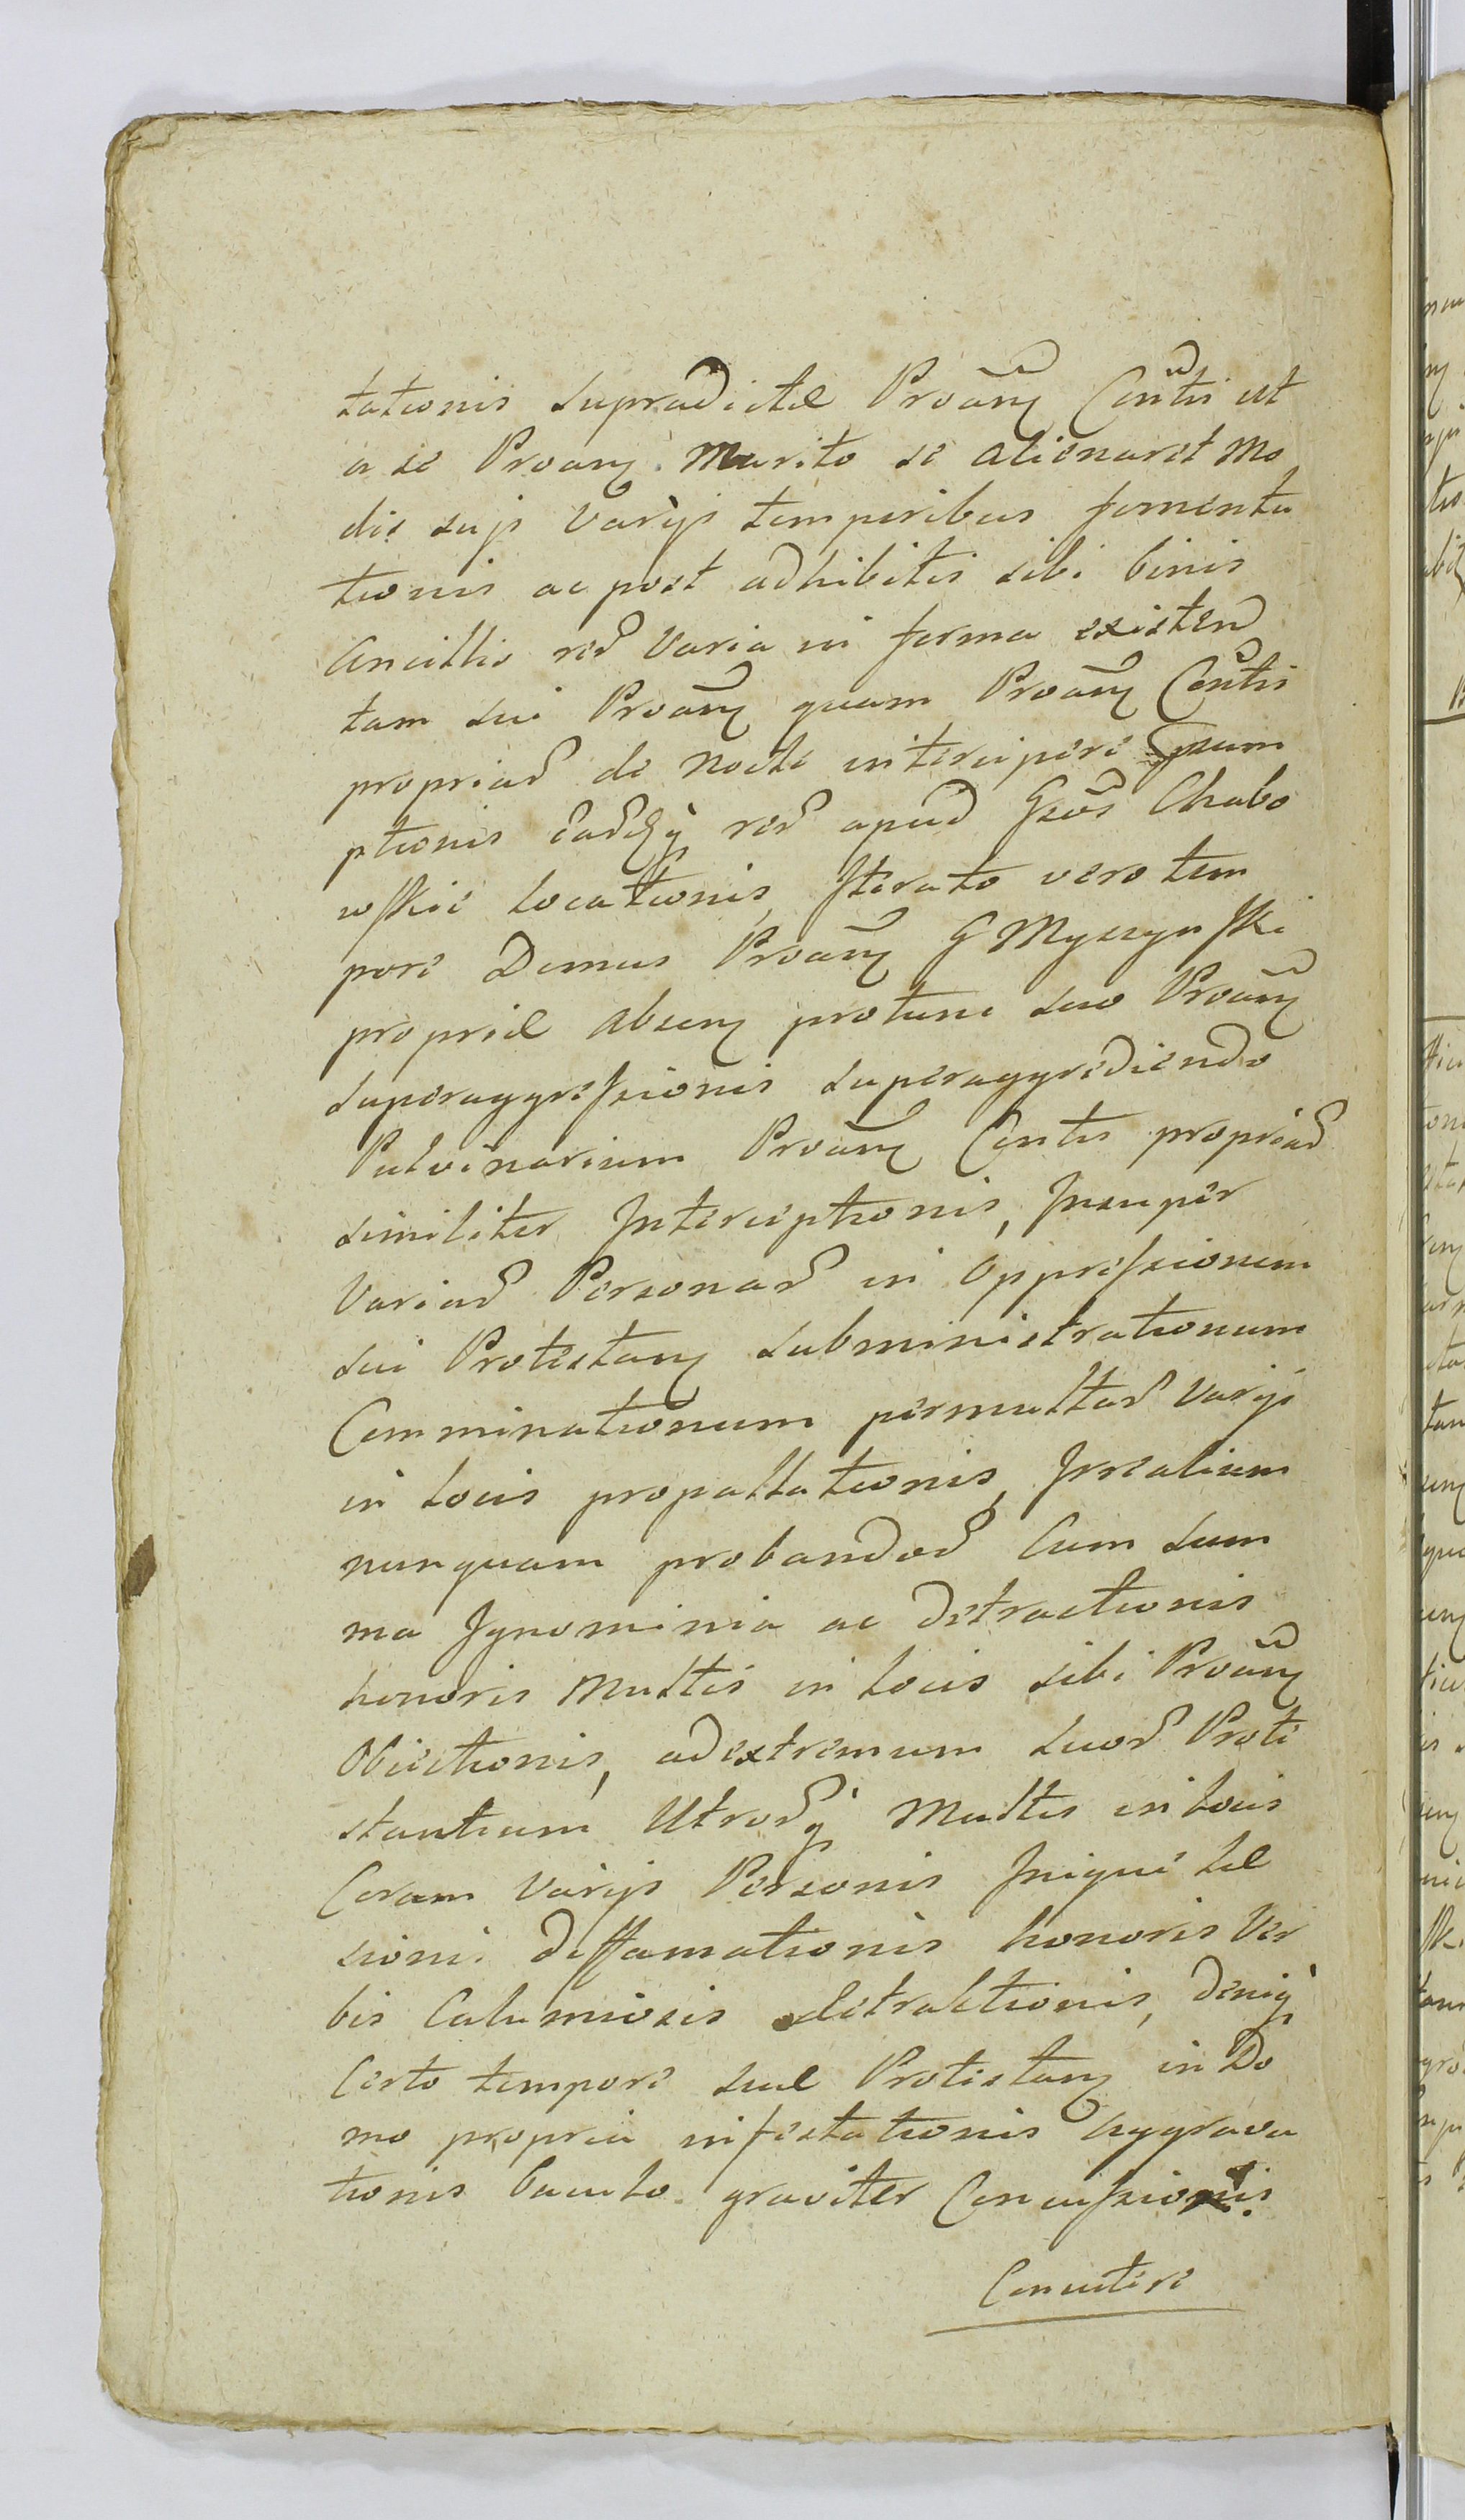 tationis supradictæ Proãn Cõntis ut
a se Proan Marito se alienaret Mo
dis sujs varijs temporibus fomenta
tionis ac post adhibitis sibi binis
Ancillis reȓ varia in forma existen
tam sui Proãn quam Proãn Cõntis
propriaȓ de nocte intercipere Ipsum
ptionis eaȓ reȓ apud Gsos Chabo
wskie Locationis, Iterato vero tem
pore Domus Proãn G Myszynski
propriæ absen protunc suo Proãn
superaggressionis superaggrediendo
Pulvinarium Proãn Contis propriaȓ
similiter Interceptionis, Insuper
Variaȓ Personaȓ in Oppressionem
sui Protestan subministrationum
Comminationum permultaȓ Varijs
in Locis propallationis, Irrealium
nunquam probandoȓ Cum Sum
ma Ignominia ac detractionis
honoris Multis in Locis sibi Proãn
Obiectionis, ad extremum suoȓ Prote
stantium Utroȓq Multis in Locis
Coram Varijs Personis Inique Læ
sionis diffamationis honoris Ver
bis Calumniosis detractionis, deniq
Certo tempore suæ Protestan in Do
mo propria infestationis Aggrava
tionis baculo graviter Concussionis.
Concutere